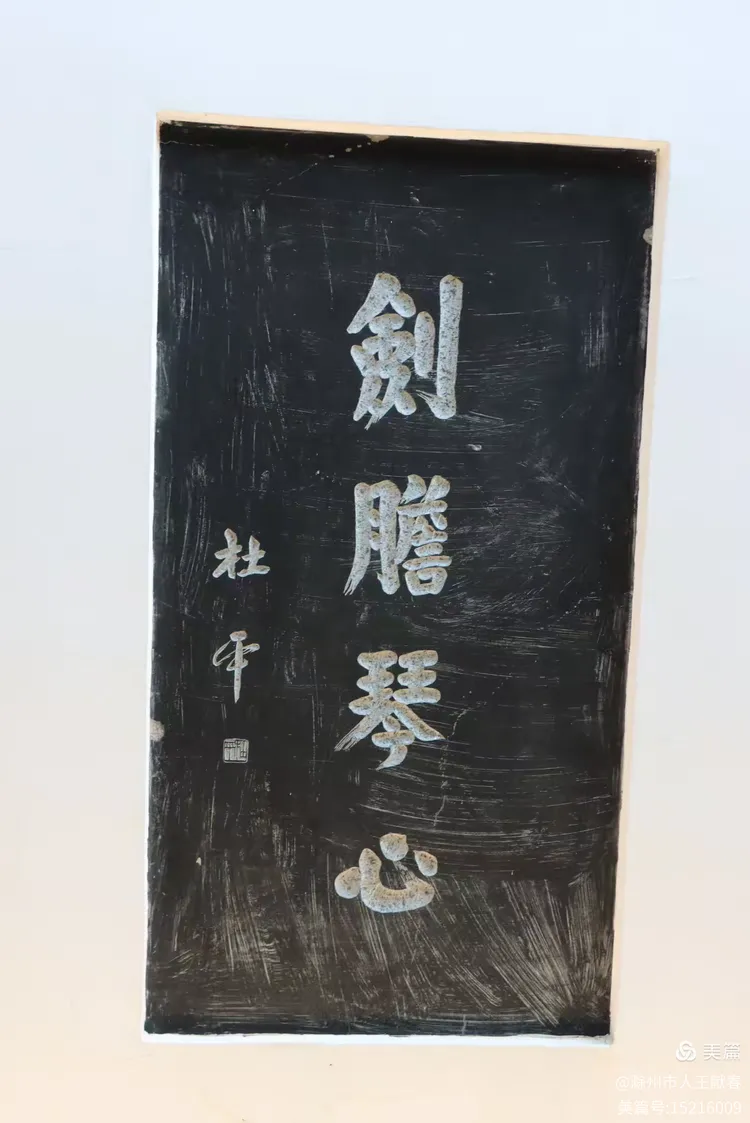 劍膽琴心
杜平
美篇
@滁州市人王献春
美篇号:15216009